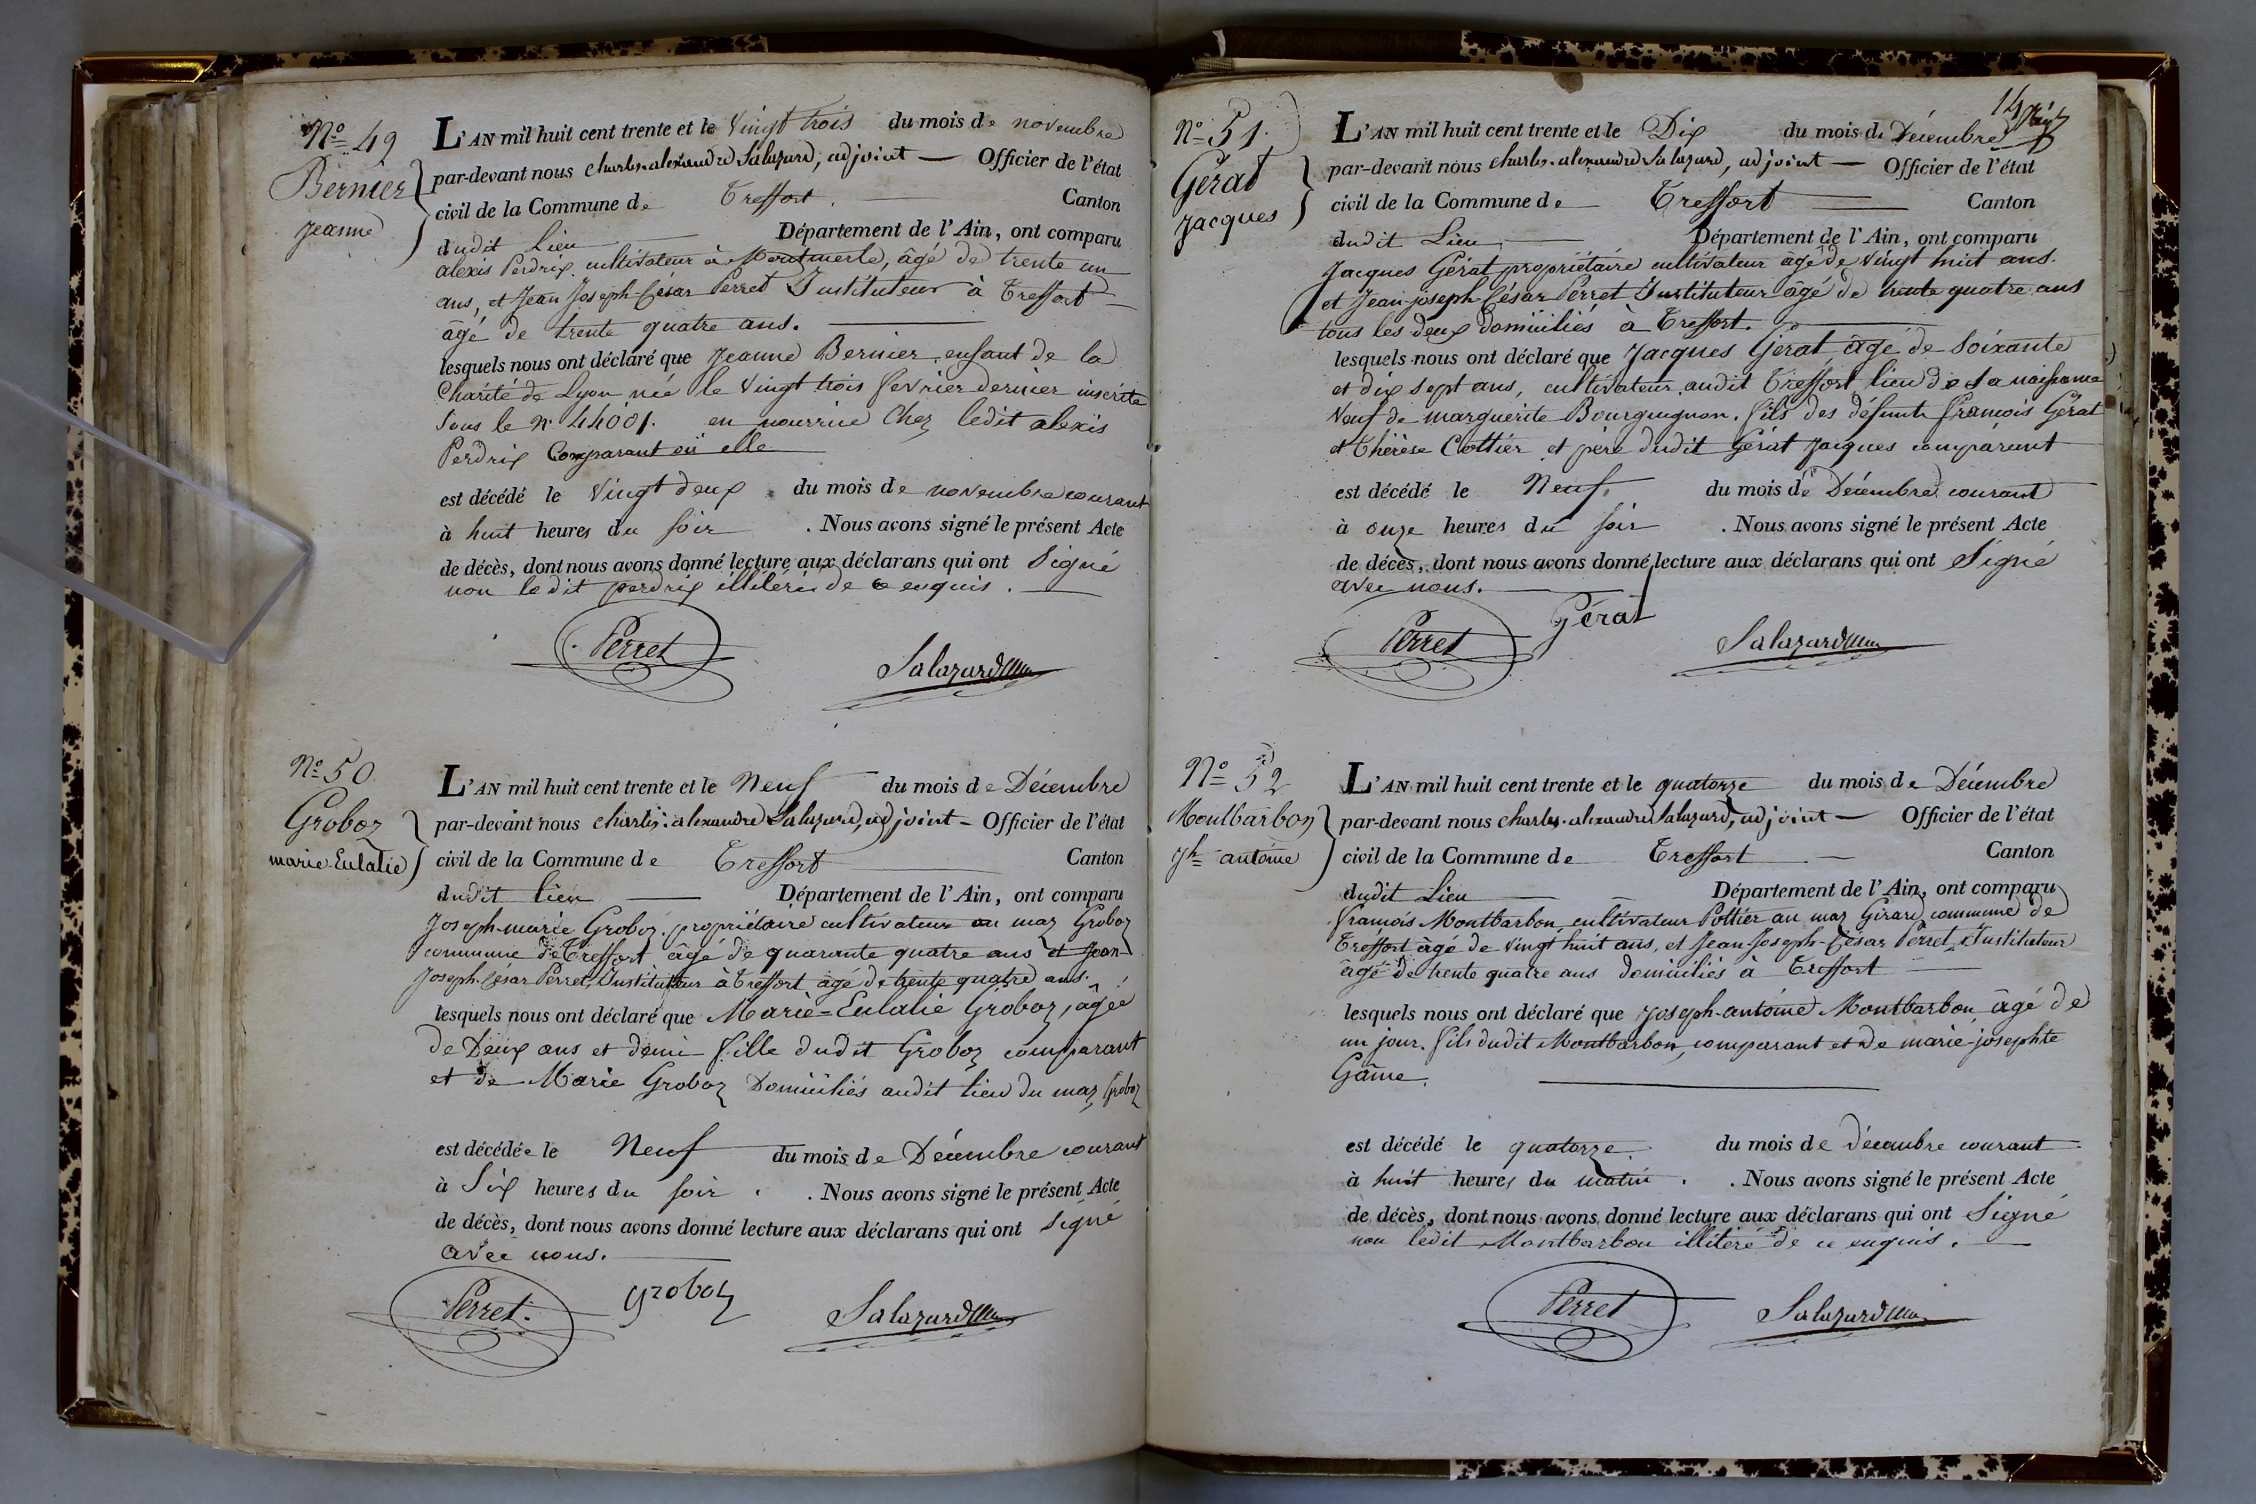 Nº 49
Bernier
Jeanne
L'AN mil huit cent trente et le vingt trois du mois de novembre
par-devant nous charles-alexandre Salazard, adjoint — Officier de l'état
civil de la Commune de Treffort. — Canton
dudit Lieu — Département de l'Ain, ont comparu
alexis Perdrix cultivateur à Montmerle, âgé de trente un
ans, et Jean Joseph-César Perret Instituteur à Treffort
âgé de trente quatre ans. —
lesquels nous ont déclaré que Jeanne Bernier, enfant de la
Charité de Lyon née le vingt trois fevrier dernier inscrite
sous le nº 44081. en nourrice Chez ledit alexis
Perdrix Comparant où elle
est décédé le vingt deux du mois de novembre courant
à huit heures du soir . Nous avons signé le présent Acte
de décès, dont nous avons donné lecture aux déclarans qui ont Signé
non ledit perdrix illiteré de ce enquis. —
Perret
Salazard
Nº 50
Groboz
marie-Eulalie
L'AN mil huit cent trente et le Neuf du mois de Décembre
par-devant nous charles-alexandre Salazard, adjoint — Officier de l'état
civil de la Commune de Treffort — Canton
dudit lieu — Département de l'Ain, ont comparu
Joseph-marie Groboz. propriétaire cultivateur au maz Groboz
commune de Treffort âgé de quarante quatre ans et Jean
Joseph-César Perret, Instituteur à Treffort âgé de trente quatre ans.
lesquels nous ont déclaré que Marie-Eulalie Groboz, âgée
de Deux ans et demi fille dudit Groboz comparant
et de Marie Groboz Domiciliés audit lieu du maz Groboz
est décédée le Neuf du mois de Décembre courant
à Six heures du soir . Nous avons signé le présent Acte
de décès, dont nous avons donné lecture aux déclarans qui ont signé
avec nous. —
Perret.
groboz
Salazard
14
Nº 51.
Gérat
Jacques
L'AN mil huit cent trente et le Dix du mois de Décembre
par-devant nous charles-alexandre Salazard, adjoint — Officier de l'état
civil de la Commune de Treffort — Canton
dudit Lieu — Département de l'Ain, ont comparu
Jacques Gérat propriétaire cultivateur âgé de vingt huit ans.
et Jean-joseph-César Perret Instituteur âgé de trente quatre ans
tous les deux domiciliés à Treffort. —
lesquels nous ont déclaré que Jacques Gérat âgé de soixante
et dix sept ans, cultivateur audit Treffort lieu de sa naissance
veuf de marguerite Bourguignon. fils des défunts francois Gérat
et Thérèse Cottier et père dudit Gérat Jacques comparant
est décédé le Neuf. du mois de Décembre courant
à onze heures du soir . Nous avons signé le présent Acte
de décès, dont nous avons donné lecture aux déclarans qui ont Signé
avec nous. —
Perret
Gérat
Salazard
Nº 52
Montbarbon
Jh antoine
L'AN mil huit cent trente et le quatorze du mois de Décembre
par-devant nous charles-alexandre Salazard, adjoint — Officier de l'état
civil de la Commune de Treffort — Canton
dudit Lieu — Département de l'Ain, ont comparu
francois Montbarbon, cultivateur Pottier au maz Girard commune de
Treffort âgé de vingt huit ans, et Jean-Joseph-César Perret Instituteur
âgé de trente quatre ans domiciliés à Treffort —
lesquels nous ont déclaré que Joseph-antoine Montbarbon âgé de
un jour. fils dudit Montbarbon comparant et de marie-josephte
Gâme. —
est décédé le quatorze. du mois de décembre courant
à huit heures du matin . Nous avons signé le présent Acte
de décès, dont nous avons donné lecture aux déclarans qui ont Signé
non ledit Montbarbon illiteré de ce enquis. —
Perret
Salazard